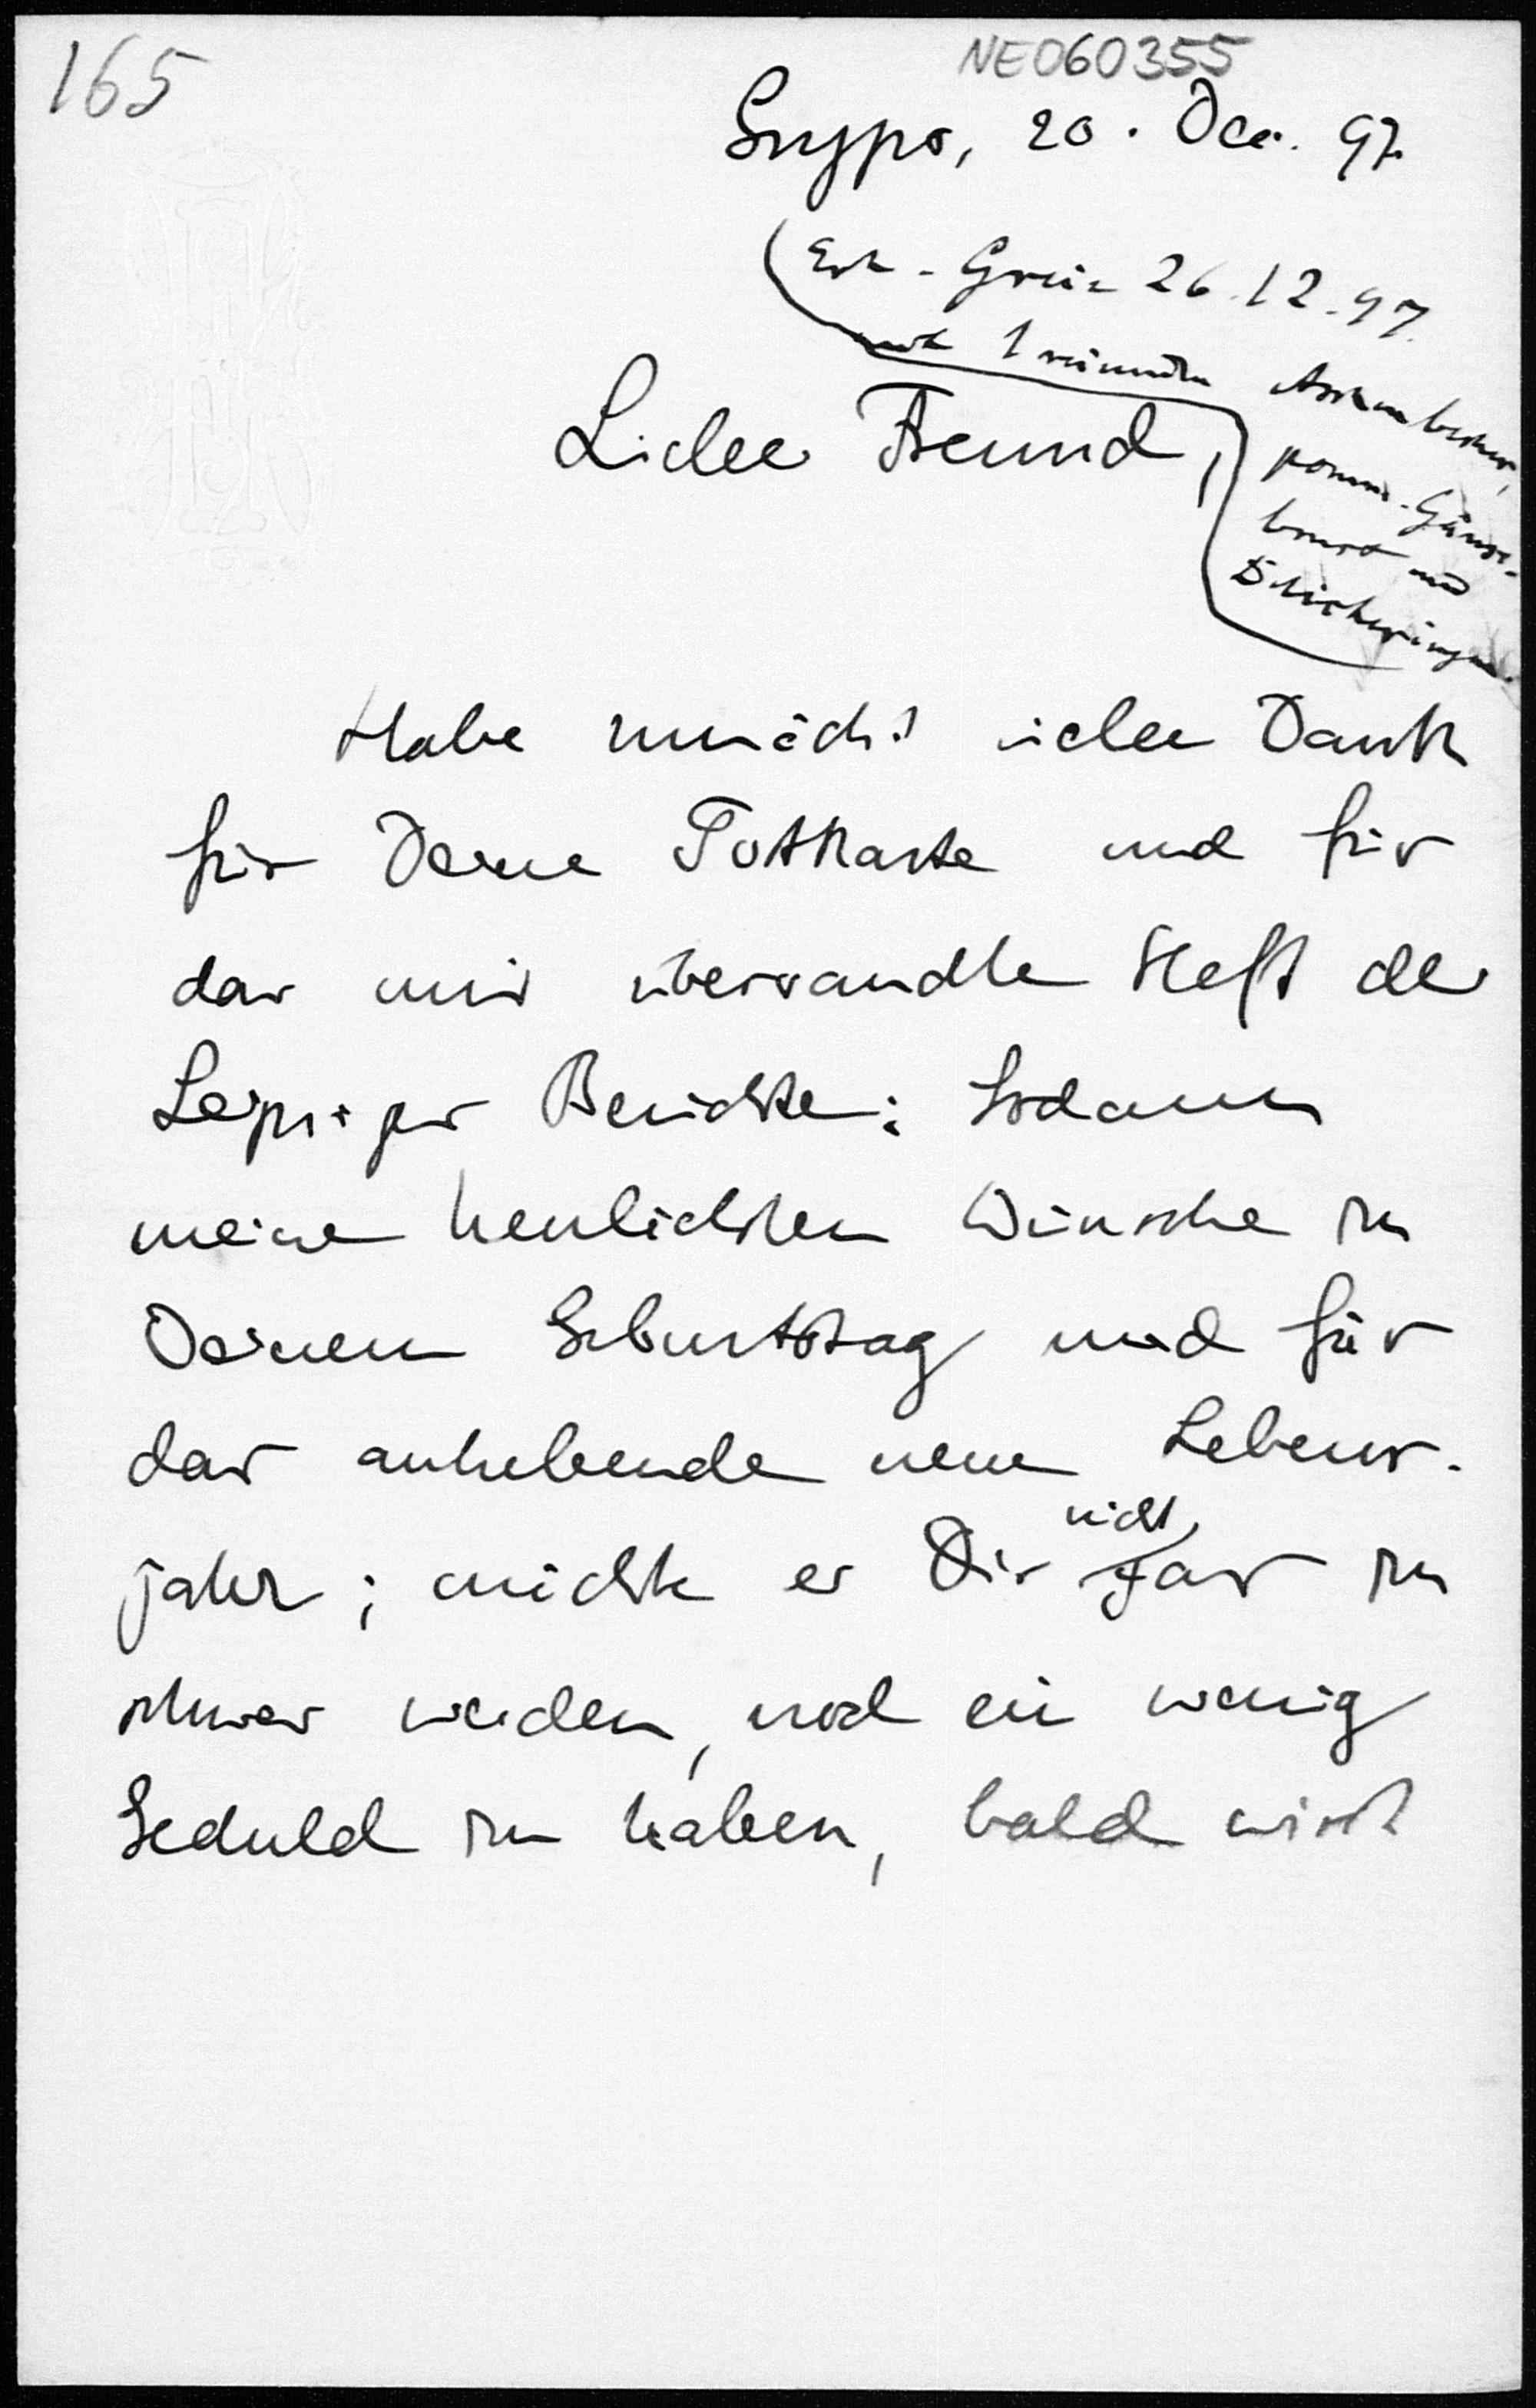 165
NE060355
Gryps, 20. Dec. 97.
Erh. - Greiz 26.12.97.
mit 1
Lieber Freund,
pomm. Gänse-
brust und
Habe zunächst vielen Dank
für Deine Postkarte und für
das mir übersandte Heft der
Leipziger Berichte; sodann
meine herzlichsten Wünsche zu
Deinem Geburtstag und für
das anhebende neue Lebens-
jahr; möchte es Dir nicht gar zu
schwer werden, noch ein wenig
Geduld zu haben, bald wirst